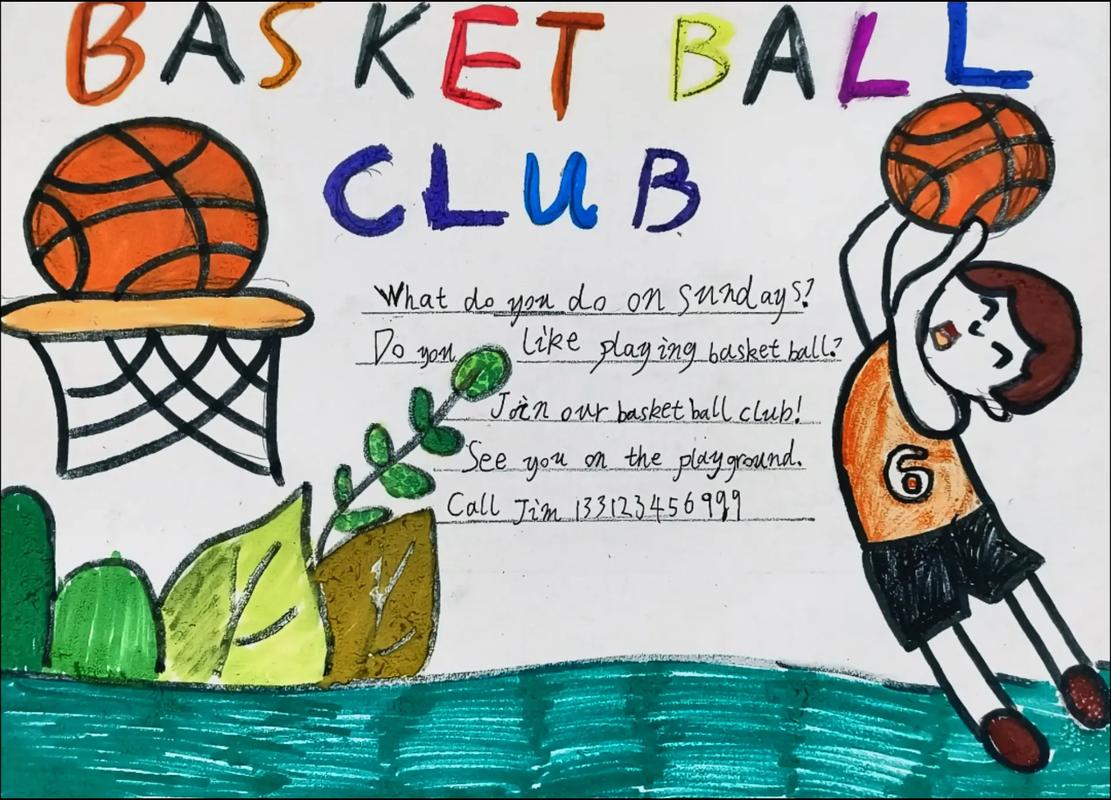 BASKET BALL
CLUB
What do you do on sundays?
Do you like playing basketball?
Join our basketball club!
See you on the playground.
Call Jim 133123456999
6